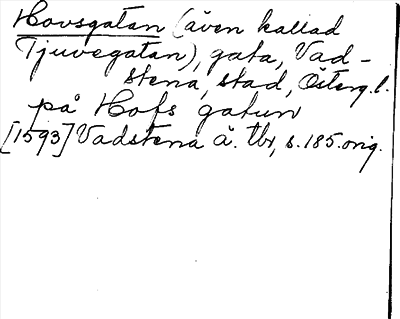 Hovsgatan (även kallad
Tjuvegatan), gata, Vad-
stena, stad, Österg. l.
på Hofs gatun
[1593] Vadstena ä. tbr, s. 185. orig.